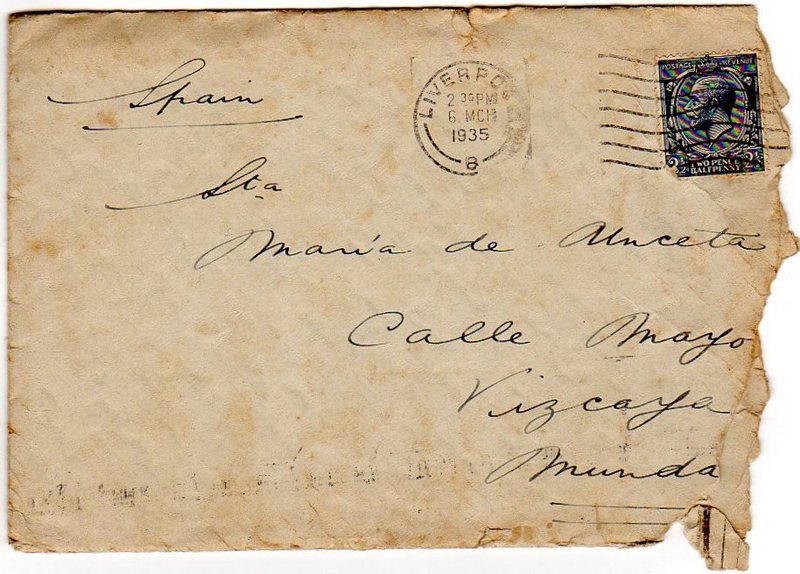 Spain
LIVERPO
2 30 PM
6 MCH
1935
8
POSTAGE REVENUE
2½ TWO PENCE HALFPENNY 2½
Sta
María de Unceta
Calle Mayo
Vizcaya
Munda